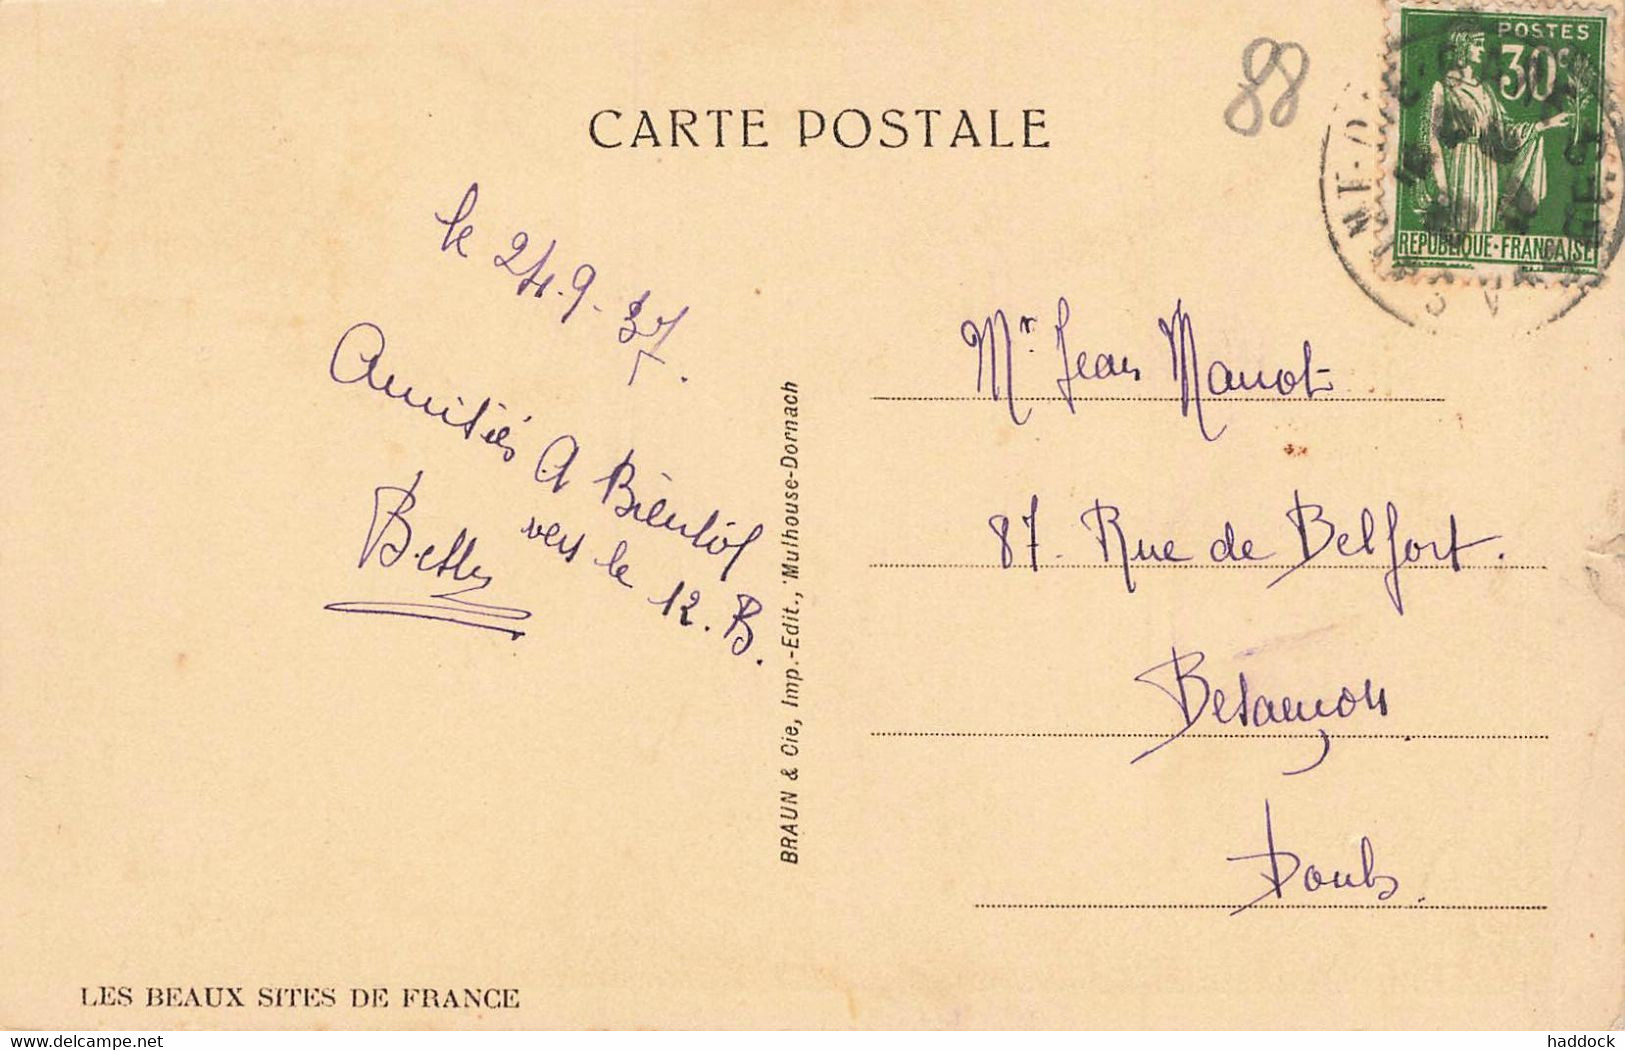 POSTES
30c
REPUBLIQUE-FRANÇAISE
88
CARTE POSTALE
le 24.9.37.
Amitiés A Bientôt
vers le 12. B.
Betty
BRAUN & Cie, Imp.-Edit., Mulhouse-Dornach
Mr. Jean Marrot
87. Rue de Belfort.
Besançon
Doubs.
LES BEAUX SITES DE FRANCE
www.delcampe.net
haddock